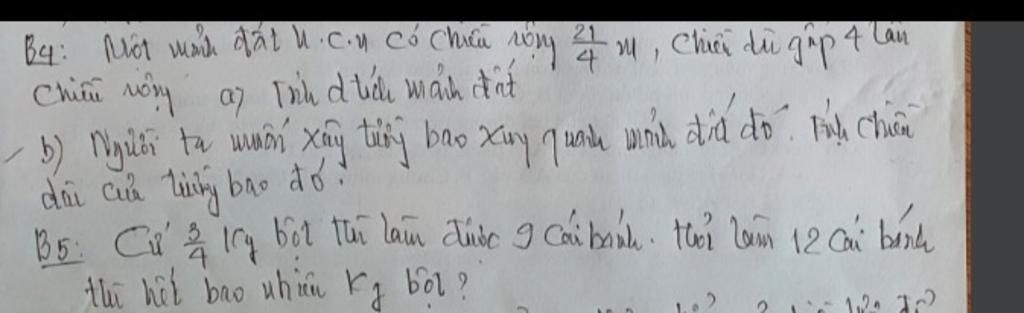 B4: Một mảnh đất h.c.n có chiều rộng 21/4 m, chiều dài gấp 4 lần
chiều rộng a) Tính d tích mảnh đất
b) Người ta muốn xây tường bao xung quanh mảnh đất đó. Tính chiều
dài của tường bao đó.
B5: Cứ 3/4 Kg bột thì làm được 9 cái bánh. Hỏi làm 12 cái bánh
thì hết bao nhiêu Kg bột?